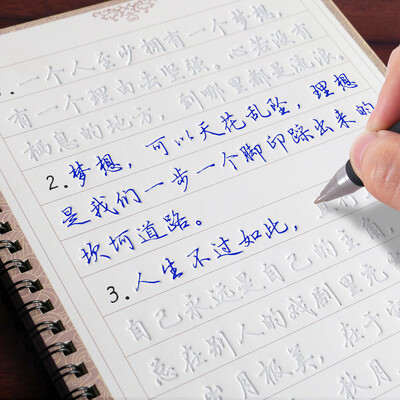 1.一个人至少拥有一个梦想，
有一个理由去坚强。心若没有
栖息的地方，到哪里都是流浪。
2.梦想，可以天花乱坠，理想
是我们一步一个脚印踩出来的
坎坷道路。
3.人生不过如此，且行
自己永远是自己的主角，
总在别人的戏剧里充
岁月极美，在于它
秋月